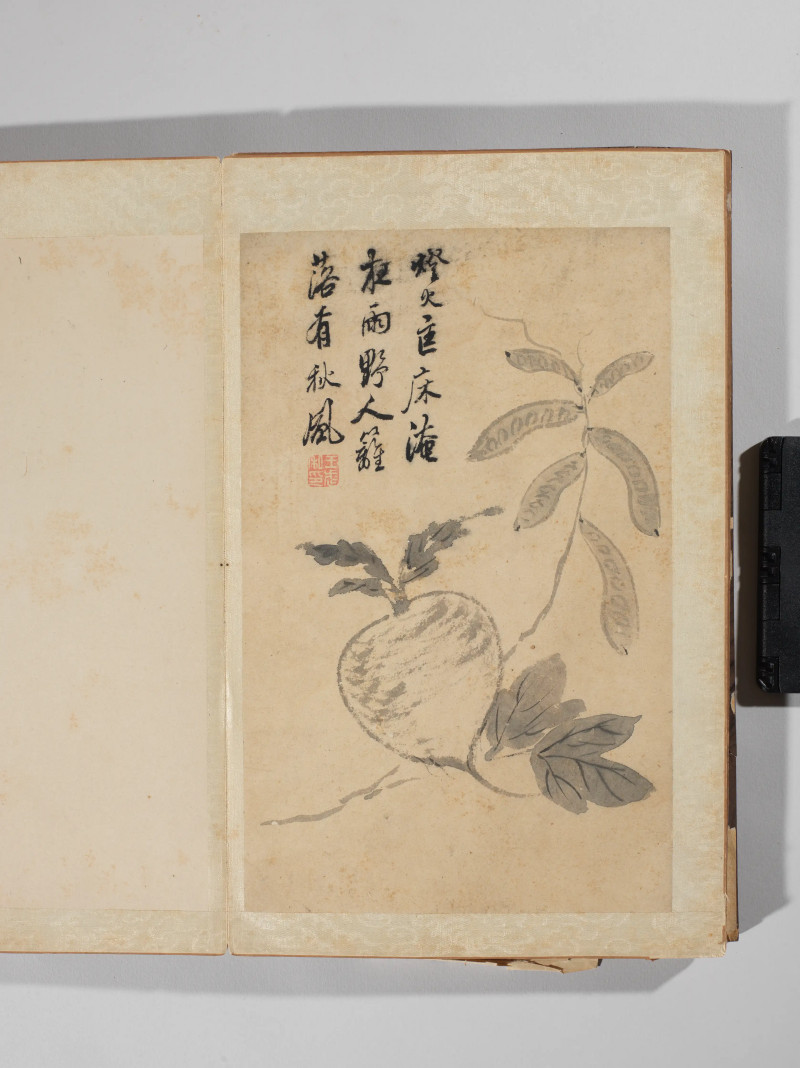 燈火匡床淹
夜雨野人籬
落有秋風